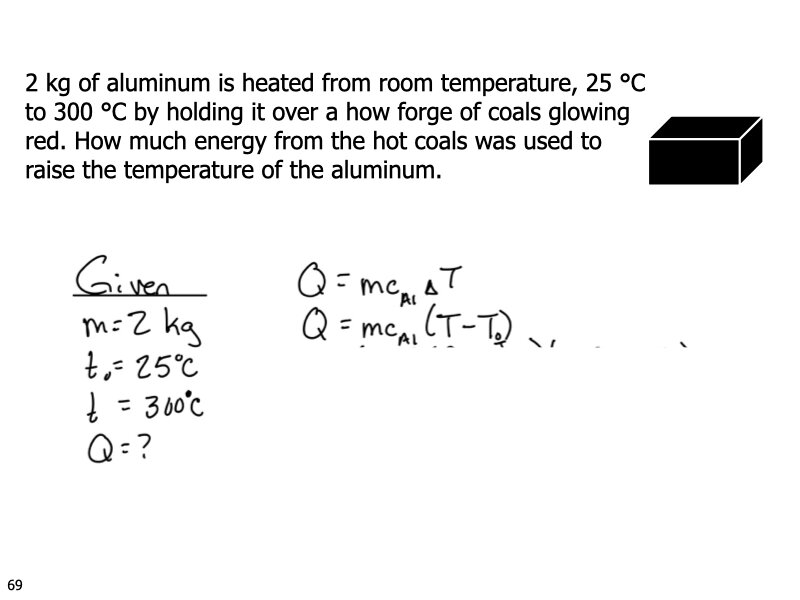 2 kg of aluminum is heated from room temperature, 25 °C
to 300 °C by holding it over a how forge of coals glowing
red. How much energy from the hot coals was used to
raise the temperature of the aluminum.
Given
m=2 kg
t₀=25°C
t =300°C
Q=?
Q = mc_Al ΔT
Q = mc_Al (T-T₀)
69